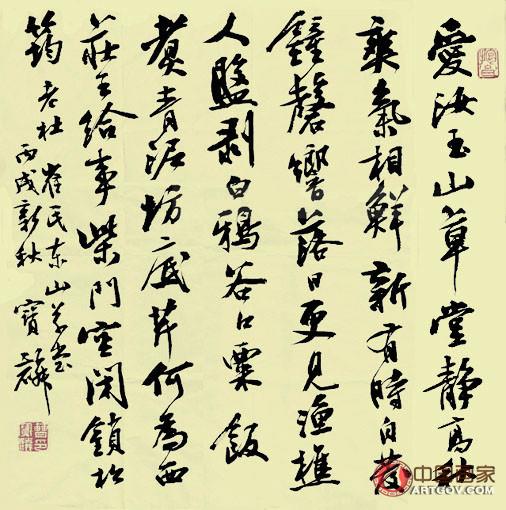 愛汝玉山草堂靜高秋
爽氣相鮮新有時自發
鐘磬響落日更見漁樵
人盤剥白鴉谷口粟飯
煮青泥坊底芹何為西
莊王給事柴門空閉鎖松
筠 老杜崔氏東山草堂
丙戌新秋 寶麟
中国画家
ARTGOV.COM